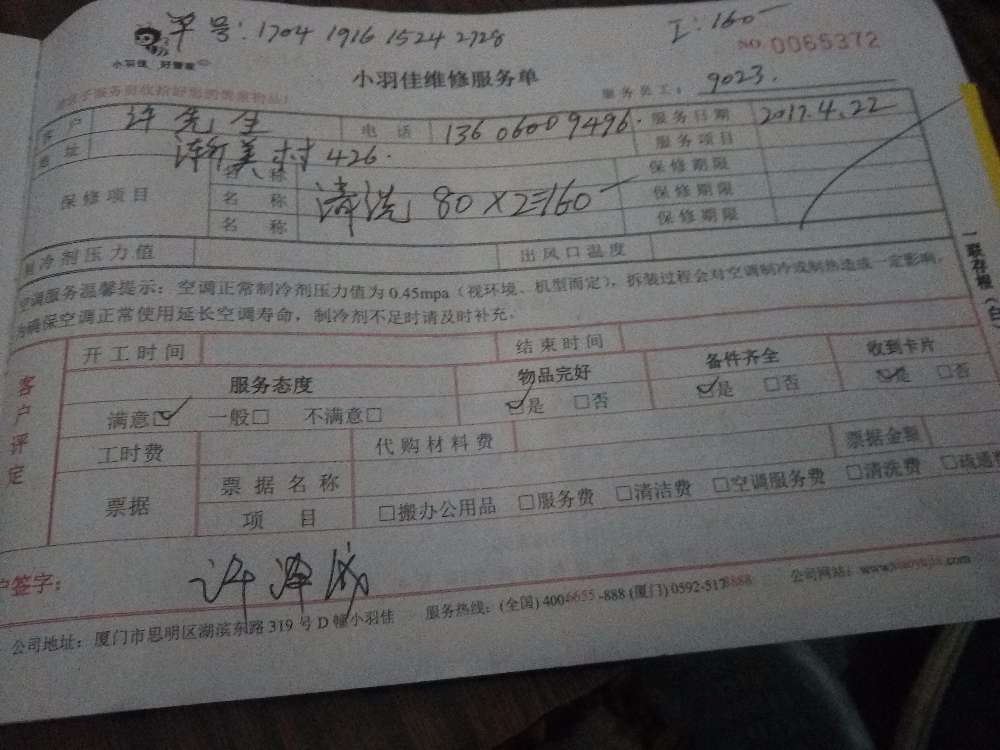 单号: 1704 1916 1524 2728
工: 160
小羽佳 好管家
NO. 0065372
小羽佳维修服务单
服务员工: 9023.
客户 许先生 电话 13606009496. 服务日期 2017.4.22
地址 美村 426. 服务项目
保修项目
名称 保修期限
名称 清洗 80×2=160 保修期限
名称 保修期限
制冷剂压力值 出风口温度
空调服务温馨提示：空调正常制冷剂压力值为0.45mpa（视环境、机型而定），拆装过程会对空调制冷或制热造成一定影响。
为确保空调正常使用延长空调寿命，制冷剂不足时请及时补充。
一联存根（白
客户评定
开工时间 结束时间
服务态度 物品完好 备件齐全 收到卡片
满意☑ 一般□ 不满意□ ☑是 □否 ☑是 □否 ☑是 □否
工时费 代购材料费 票据金额
票据 票据名称
项目 □搬办公用品 □服务费 □清洁费 □空调服务费 □清洗费 □疏通
户签字：
公司地址：厦门市思明区湖滨东路319号D幢小羽佳 服务热线：(全国) 4006655-888 (厦门) 0592-5178888 公司网站：www.xiaoyujia.com